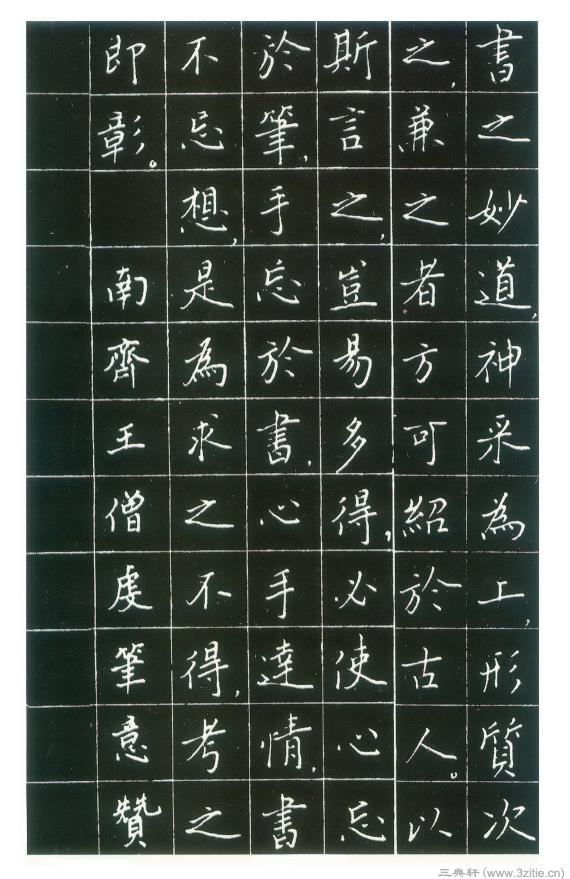 書之妙道,神采為上,形質次
之,兼之者方可紹於古人。以
斯言之,豈易多得,必使心忘
於筆,手忘於書,心手達情,書
不忘想,是為求之不得,考之
即彰。 南齊王僧虔筆意贊
三典轩 (www.3zitie.cn)